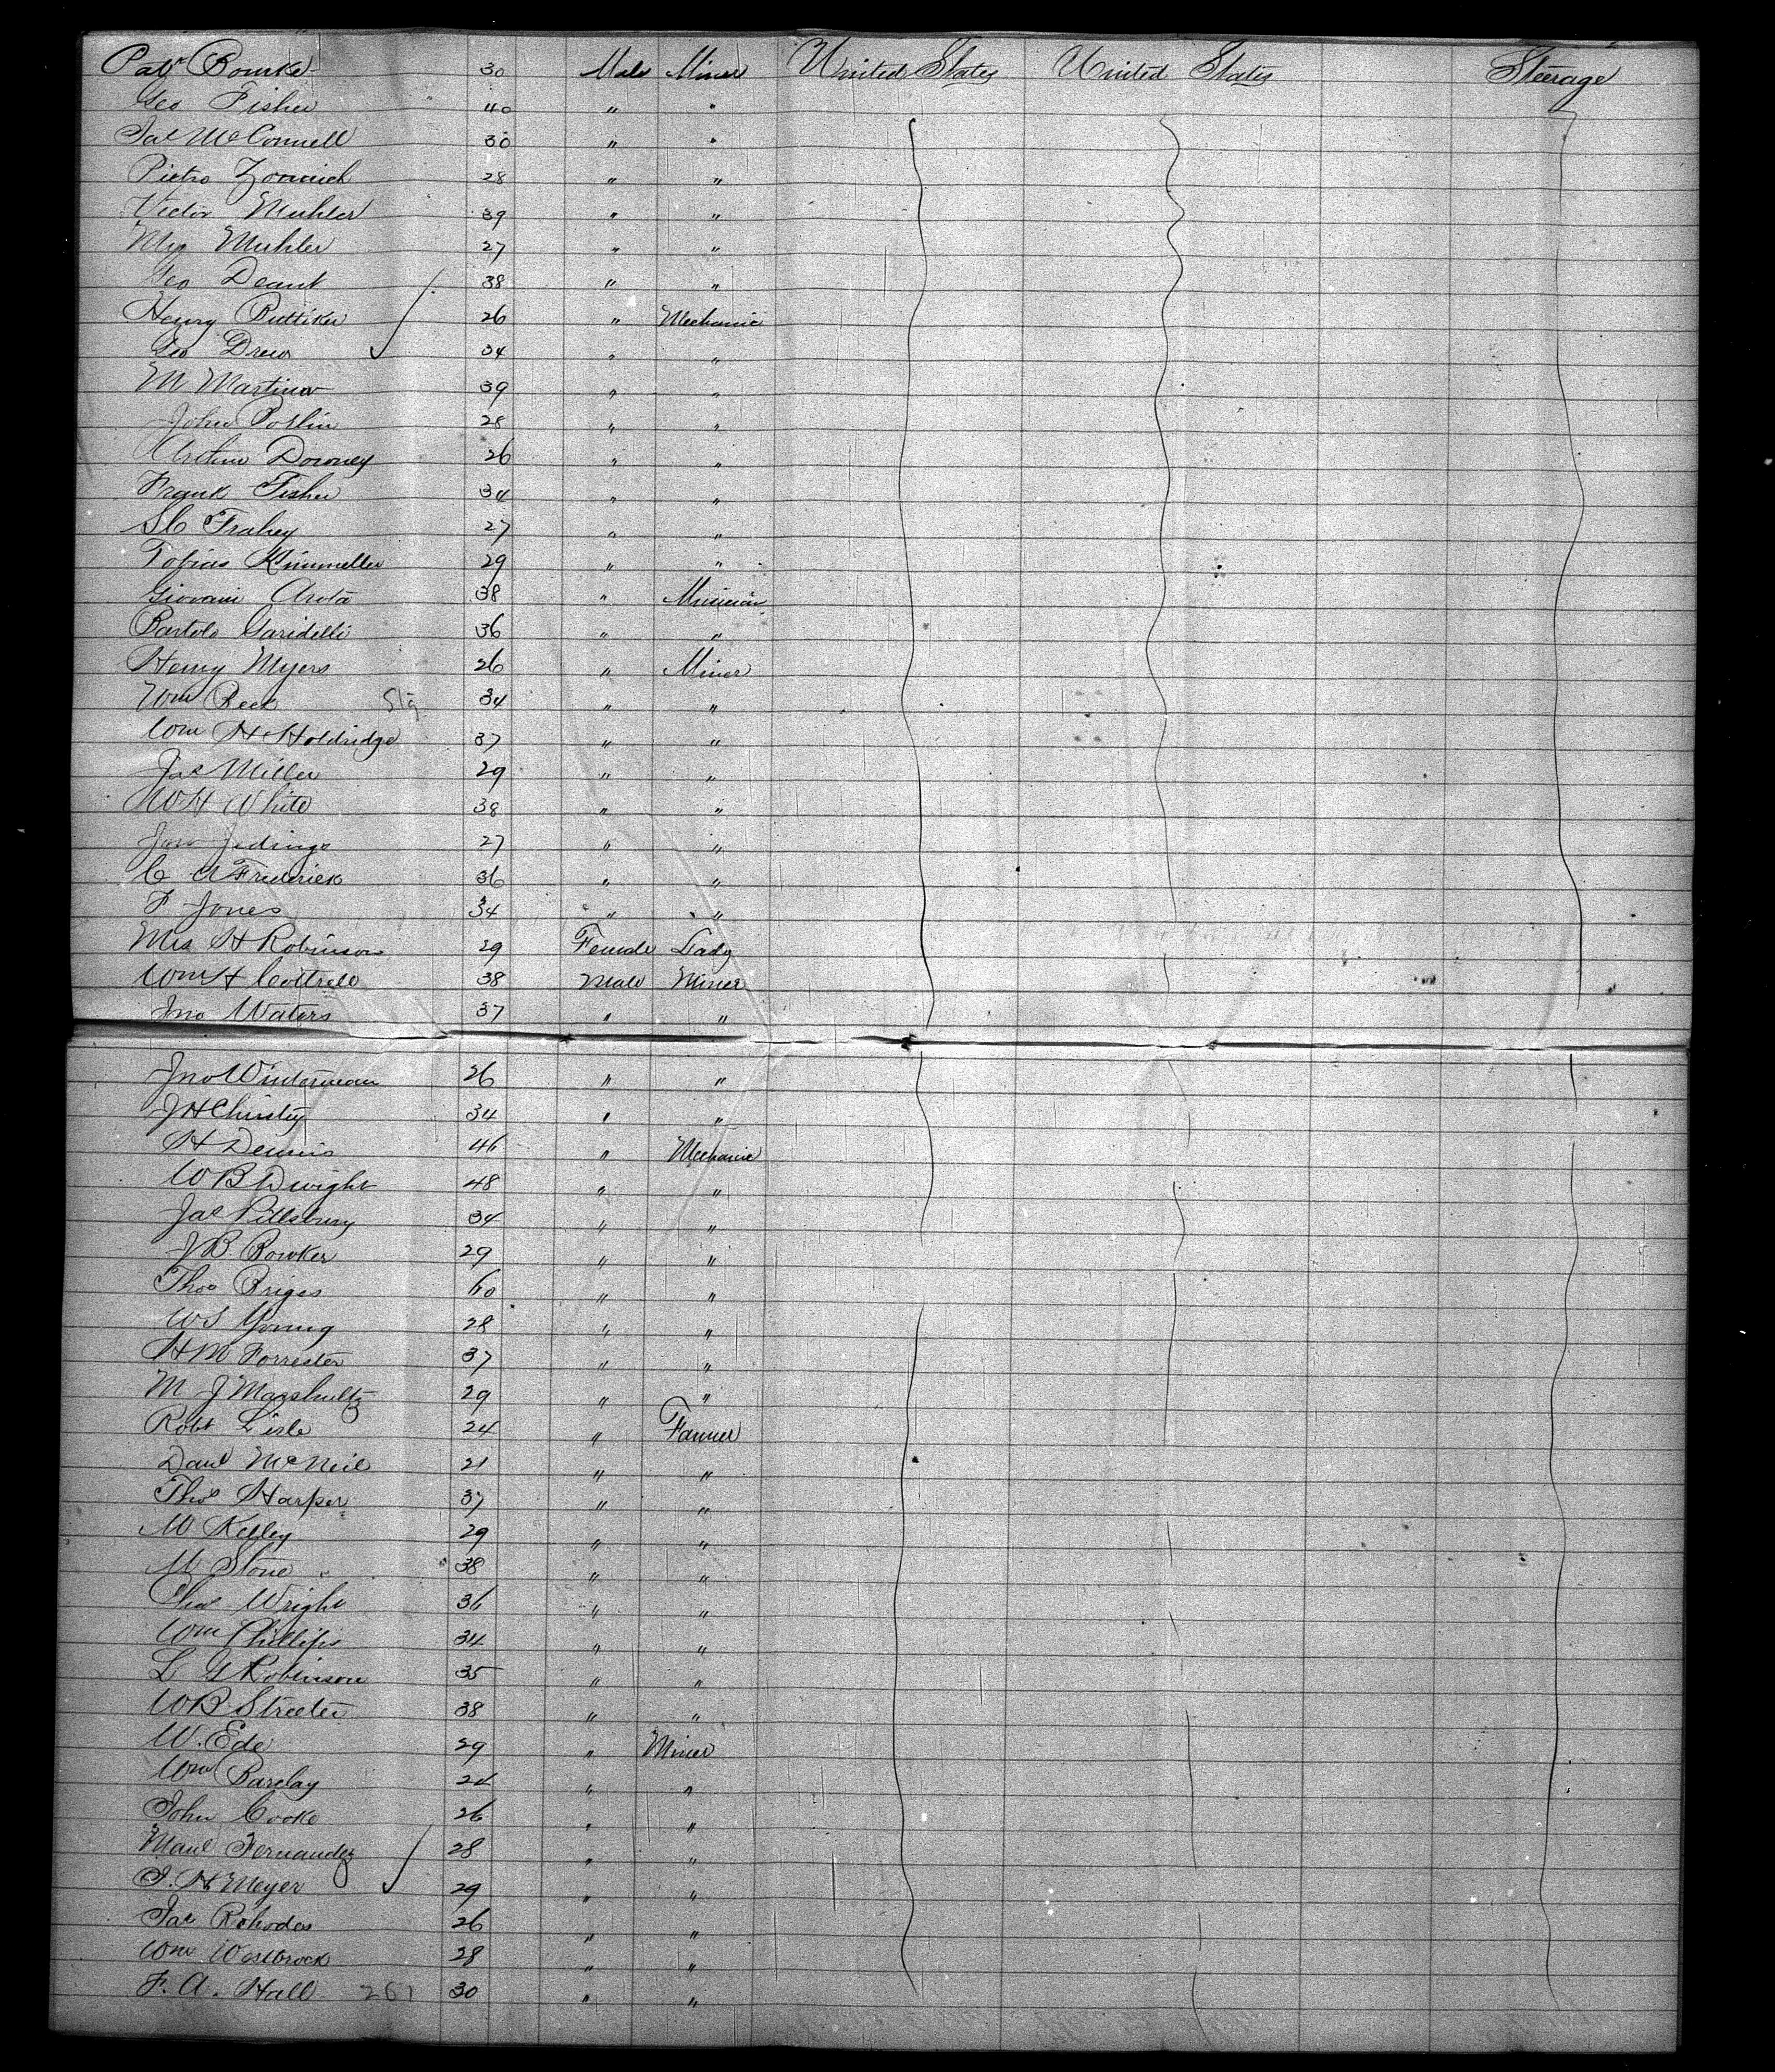 Pat Bourke 30 Male Miner United States United States Steerage
Geo Fisher 40 " "
Jas McConnell 30 " "
Pietro 28 " "
Victor Muhler 39 " "
Muhler 27 " "
Geo 38 " "
Henry Buttiker 26 " Mechanic
Geo Drew 34 " "
M 39 " "
John 28 " "
Arthur Downey 26 " "
Frank Fisher 34 " "
Frahey 27 " "
Tobias 29 " "
Giovani Arota 38 " Musician
Bartolo Garidelli 36 " "
Henry Myers 26 " Miner
Wm Reek Stg 34 " "
Wm H Holdridge 37 " "
Jas Miller 29 " "
W H White 38 " "
27 " "
C A Frederick 36 " "
F Jones 34 " "
Mrs H Robinson 29 Female Lady
Wm H Cottrell 38 Male Miner
Jno Waters 37 " "
Jno Winterman 26 " "
J H Christy 34 " "
H Dennis 46 " Mechanic
W B Dwight 48 " "
Jas Pillsbury 34 " "
J B Bowker 29 " "
Thos Briggs 60 " "
W S Young 28 " "
H M Forrester 37 " "
M J Marshultz 29 " "
Robt Lisle 24 " Farmer
Danl McNeil 21 " "
Thos Harper 37 " "
M Kelley 29 " "
M Stone 38 " "
Chas Wright 36 " "
Wm Phillips 34 " "
L G Robinson 35 " "
W B Streeter 38 " "
W. Ede 29 " Miner
Wm Barclay 24 " "
John Cooke 26 " "
Manl Fernandez 28 " "
J. H Meyer 29 " "
Jas Rohodes 26 " "
Wm Westbrook 28 " "
F. A. Hall 261 30 " "